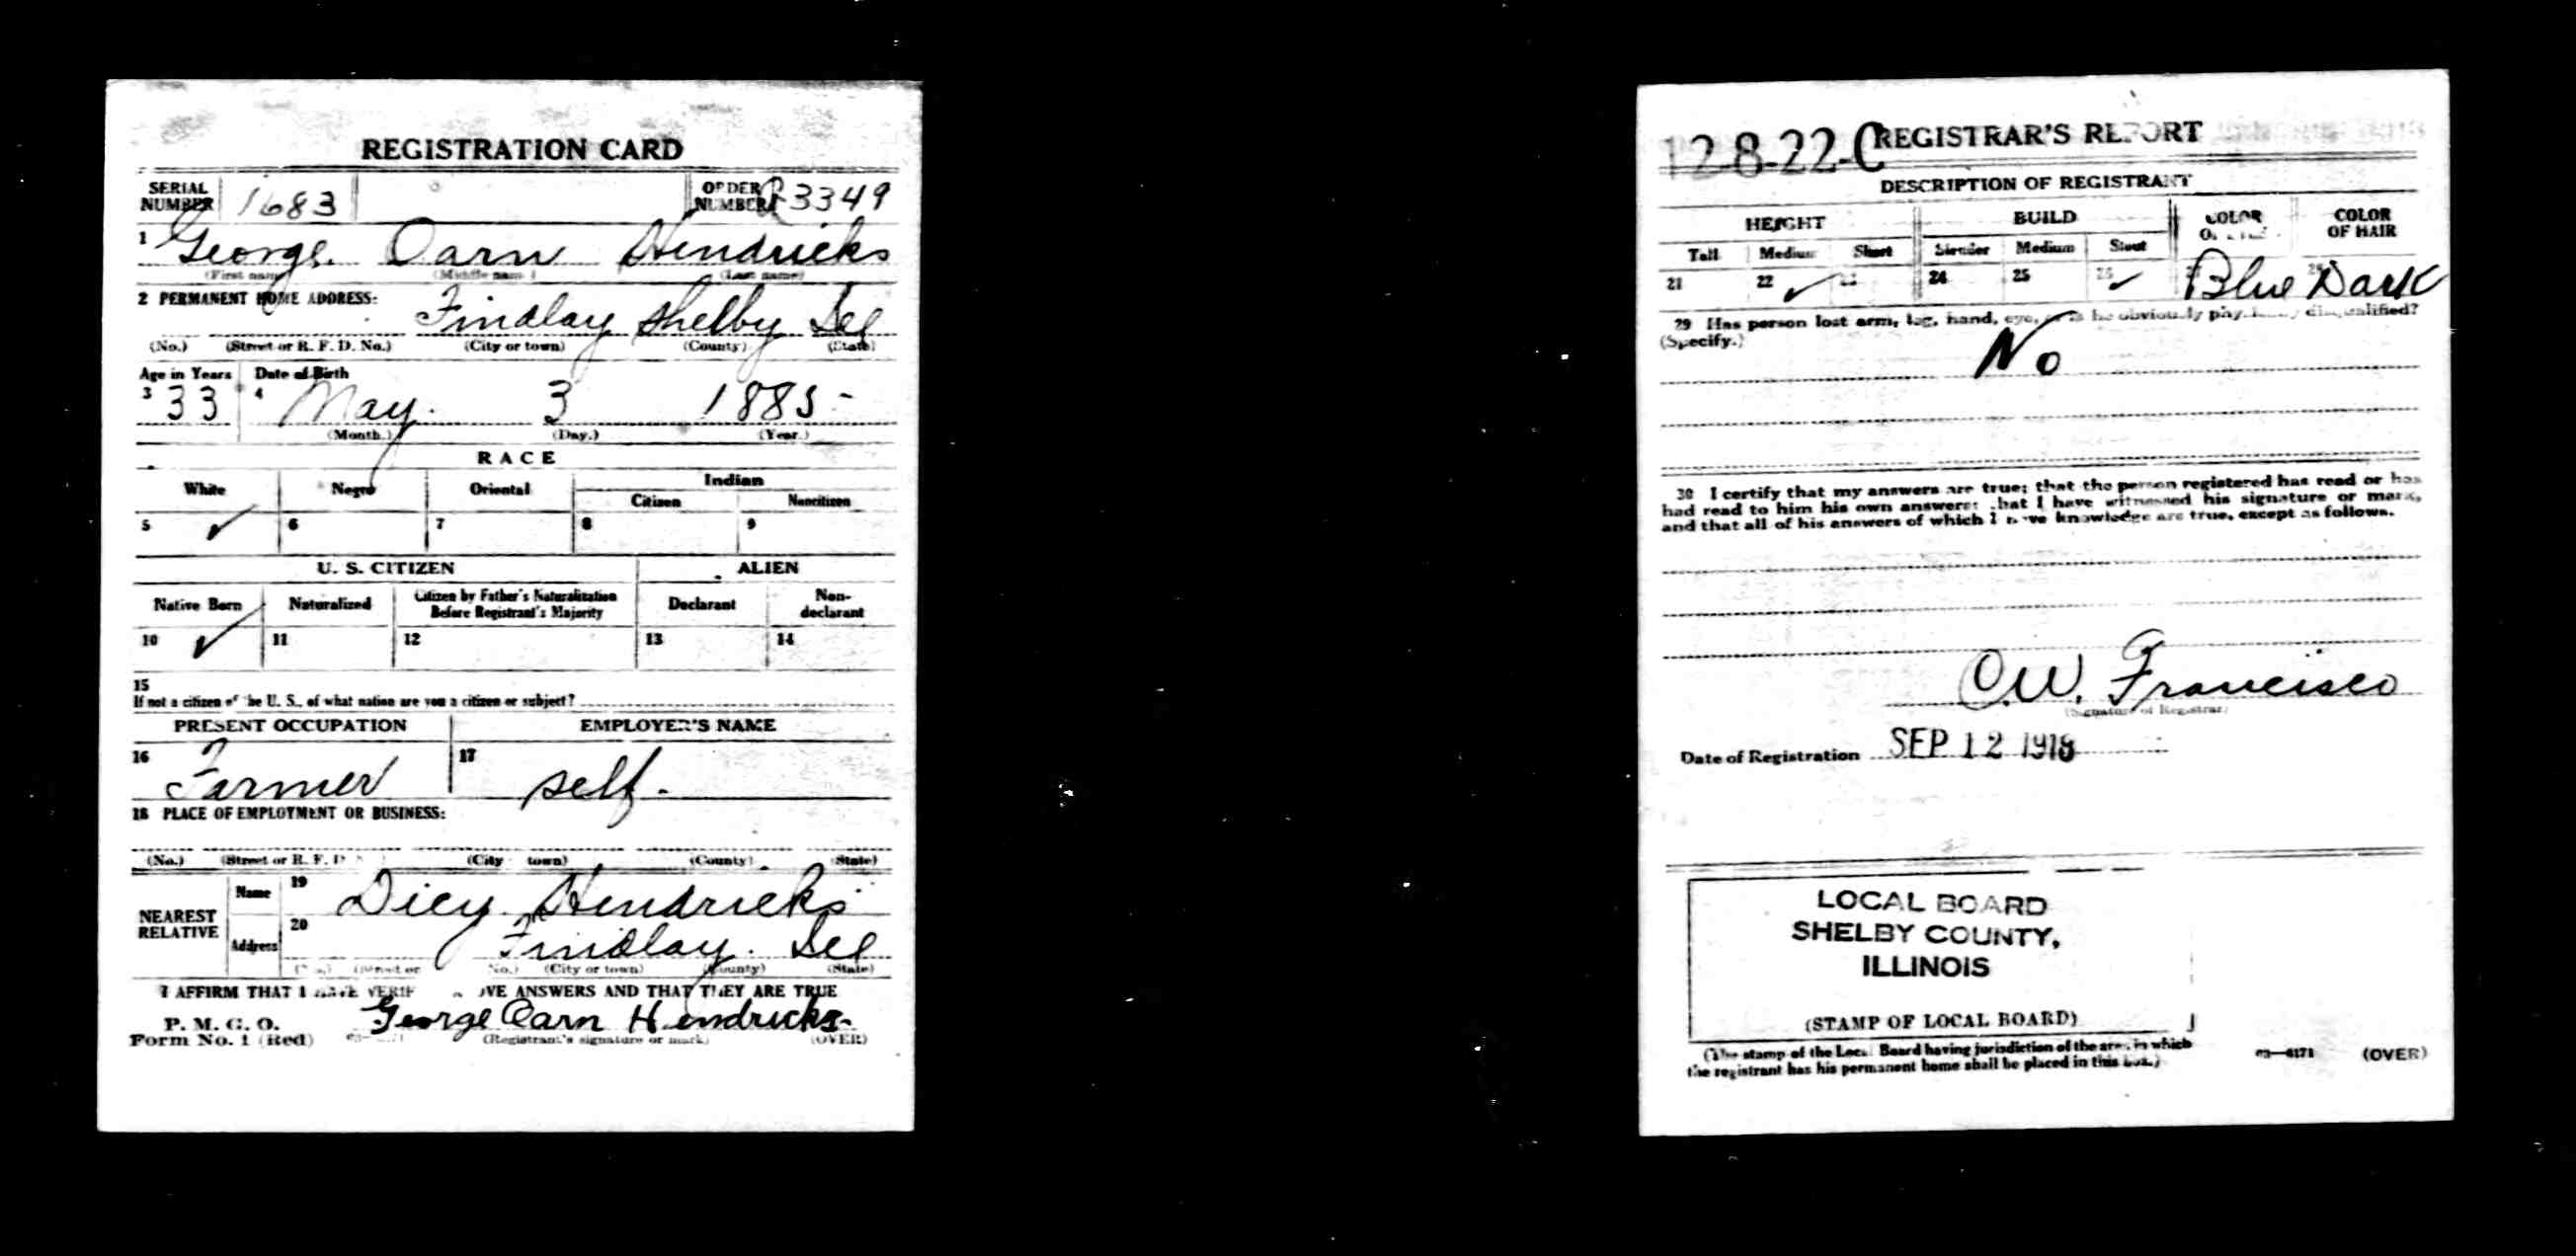 REGISTRATION CARD
SERIAL NUMBER 1683 ORDER NUMBER 3349
1 George Oarn Hendricks
(First name) (Middle name) (Last name)
2 PERMANENT HOME ADDRESS:
Findlay Shelby Ill
(No.) (Street or R. F. D. No.) (City or town) (County) (State)
Age in Years Date of Birth
3 33 4 May. 3 1885-
(Month.) (Day.) (Year.)
RACE
White Negro Oriental Indian
Citizen Noncitizen
5 ✓ 6 7 8 9
U. S. CITIZEN ALIEN
Native Born Naturalized Citizen by Father's Naturalization Before Registrant's Majority Declarant Non-declarant
10 ✓ 11 12 13 14
15
If not a citizen of the U. S., of what nation are you a citizen or subject?
PRESENT OCCUPATION EMPLOYER'S NAME
16 Farmer 17 self.
18 PLACE OF EMPLOYMENT OR BUSINESS:
(No.) (Street or R. F. D (City town) (County) (State)
NEAREST RELATIVE Name 19 Dicy Hendricks
Address 20 Findlay. Ill
(Street or No.) (City or town) (County) (State)
I AFFIRM THAT I HAVE VERIF OVE ANSWERS AND THAT THEY ARE TRUE
P. M. G. O.
Form No. 1 (Red) George Oarn Hendricks-
(Registrant's signature or mark) (OVER)
12-8-22-C REGISTRAR'S REPORT
DESCRIPTION OF REGISTRANT
HEIGHT BUILD COLOR OF EYES COLOR OF HAIR
Tall Medium Short Slender Medium Stout
21 22 ✓ 23 24 25 26 ✓ 27 Blue 28 Dark
29 Has person lost arm, leg, hand, eye, or is he obviously physically disqualified?
(Specify.) No
30 I certify that my answers are true; that the person registered has read or has
had read to him his own answers; that I have witnessed his signature or mark,
and that all of his answers of which I have knowledge are true, except as follows.
C.W. Francisco
(Signature of Registrar)
Date of Registration SEP 12 1918
LOCAL BOARD
SHELBY COUNTY,
ILLINOIS
(STAMP OF LOCAL BOARD)
(The stamp of the Local Board having jurisdiction of the area in which
the registrant has his permanent home shall be placed in this box.)
03—6171 (OVER)